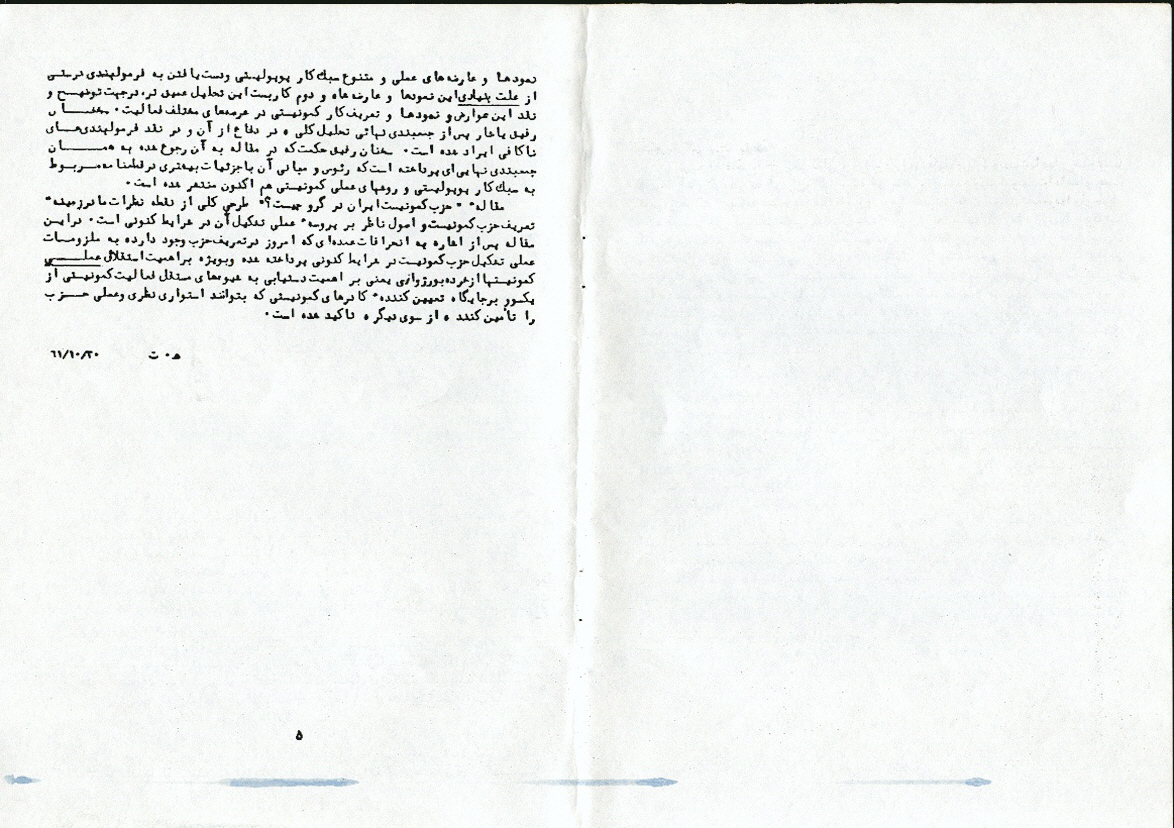 نمودها و عارضه‌های عملی و متنوع سبک کار پوپولیستی و دست یافتن به فرمولبندی درستی
از علت بنیادی این نمودها و عارضه‌ها، و دوم کاربست این تحلیل عمیق تر، در جهت توضیح و
نقد این عوارض و نمودها و تعریف کار کمونیستی در عرصه‌های مختلف فعالیت. سخنان
رفیق یاغار پس از جمعبندی نهائی تحلیل کلی، در دفاع از آن و در نقد فرمولبندی‌های
ناکافی ایراد شده است. سخنان رفیق حکمت که در مقاله به آن رجوع شده به همان
جمعبندی نهایی‌ای پرداخته است که رئوس و مبانی آن با جزئیات بیشتری در قطعنامه مربوط
به سبک کار پوپولیستی و روشهای عملی کمونیستی هم اکنون منتشر شده است.
مقاله "حزب کمونیست ایران در گرو چیست؟" طرحی کلی از نقطه نظرات ما در زمینه
تعریف حزب کمونیست و اصول ناظر بر پروسه عملی تشکیل آن در شرایط کنونی است. در این
مقاله پس از اشاره به انحرافات عمده‌ای که امروز در تعریف حزب وجود دارد، به ملزومات
عملی تشکیل حزب کمونیست در شرایط کنونی پرداخته شده و بویژه بر اهمیت استقلال عملی
کمونیستها از خرده بورژوازی یعنی بر اهمیت دستیابی به شیوه‌های مستقل فعالیت کمونیستی از
یکسو، بر جایگاه تعیین کننده کادرهای کمونیستی که بتوانند استواری نظری و عملی حزب
را تأمین کنند، از سوی دیگر، تاکید شده است.
ه. ت ٦١/١٠/٢٠
۵